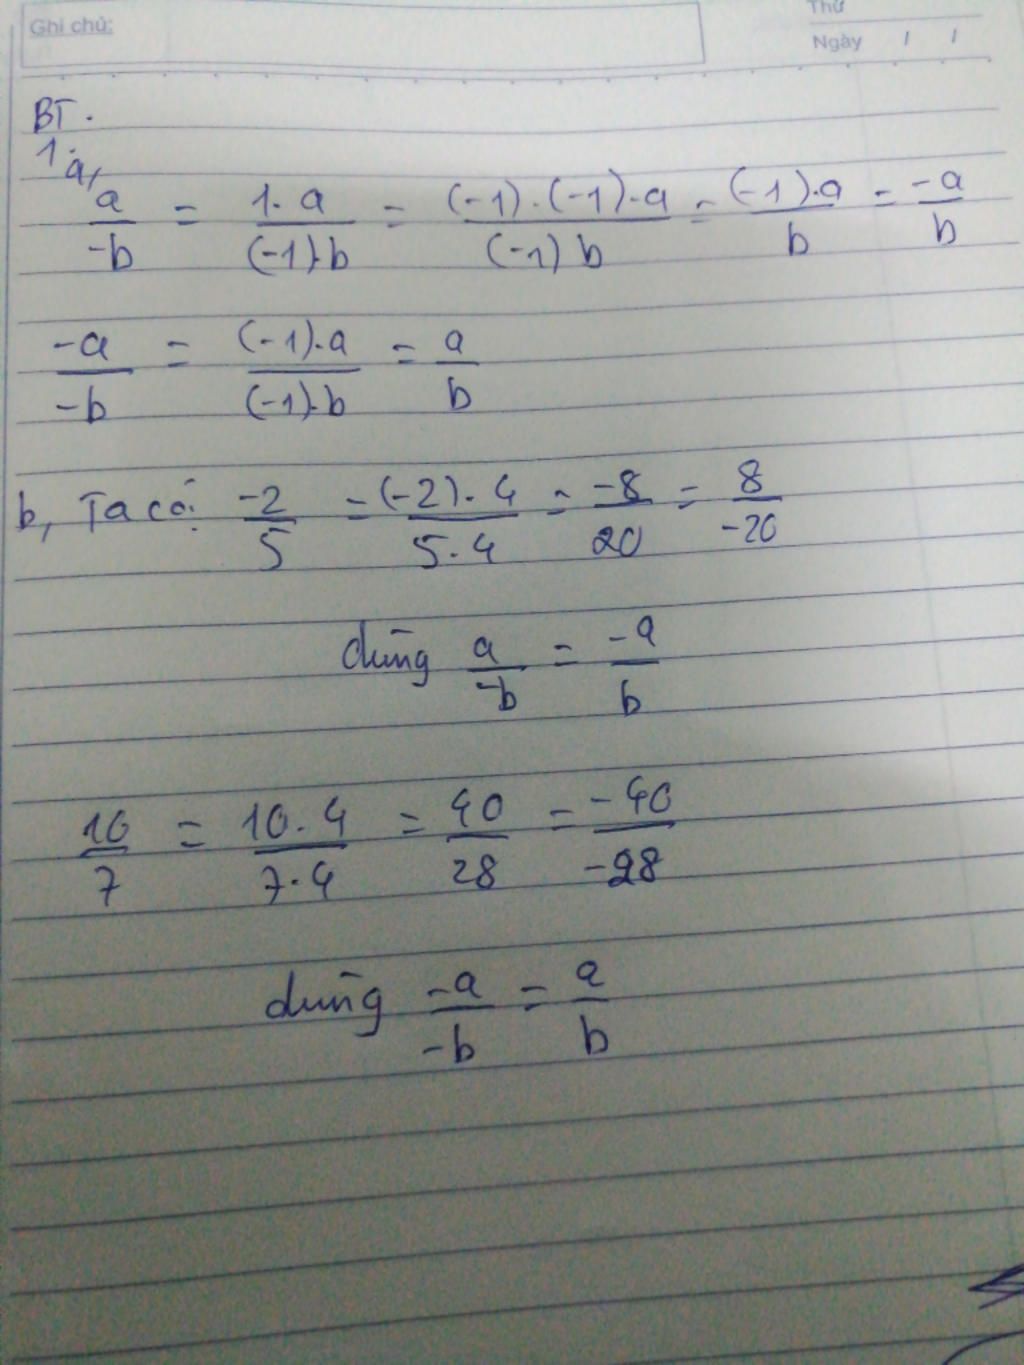 Ghi chú:
Thứ
Ngày / /
BT.
1. a,
a/-b = 1.a/(-1).b = (-1).(-1).a/(-1)b = (-1).a/b = -a/b
-a/-b = (-1).a/(-1).b = a/b
b, Ta có: -2/5 = (-2).4/5.4 = -8/20 = 8/-20
dùng a/-b = -a/b
10/7 = 10.4/7.4 = 40/28 = -40/-28
dùng -a/-b = a/b